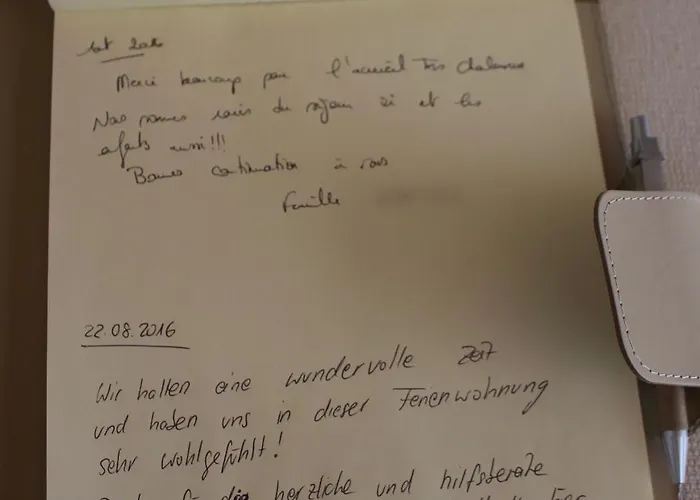 Août 2016
Merci beaucoup pour l'accueil très chaleureux
Nous sommes ravis du séjour ici et les
enfants aussi!!!
Bonne continuation à vous
Famille
22.08.2016
Wir hatten eine wundervolle Zeit
und haben uns in dieser Ferienwohnung
sehr wohlgefühlt!
die herzliche und hilfsbereite